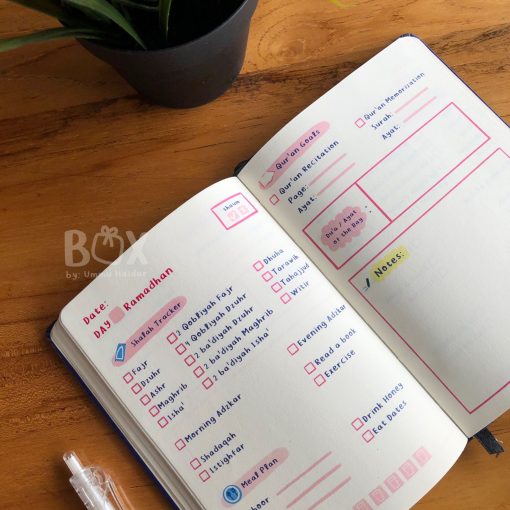 BOX
by: Ummu Haidar
Shaum
Date:
DAY Ramadhan
Shalah Tracker
Fajr
Dzuhr
Ashr
Maghrib
Isha'
2 Qobliyah Fajr
4 Qobliyah Dzuhr
2 ba'diyah Dzuhr
2 ba'diyah Maghrib
2 ba'diyah Isha'
Dhuha
Tarawih
Tahajjud
Witir
Morning Adzkar
Shadaqah
Istighfar
Evening Adzkar
Read a book
Exercise
Drink Honey
Eat Dates
Meal Plan
Qur'an Goals
Qur'an Recitation
Page:
Ayat:
Qur'an Memorization
Surah:
Ayat:
Du'a / Ayat
of the Day
:
Notes: